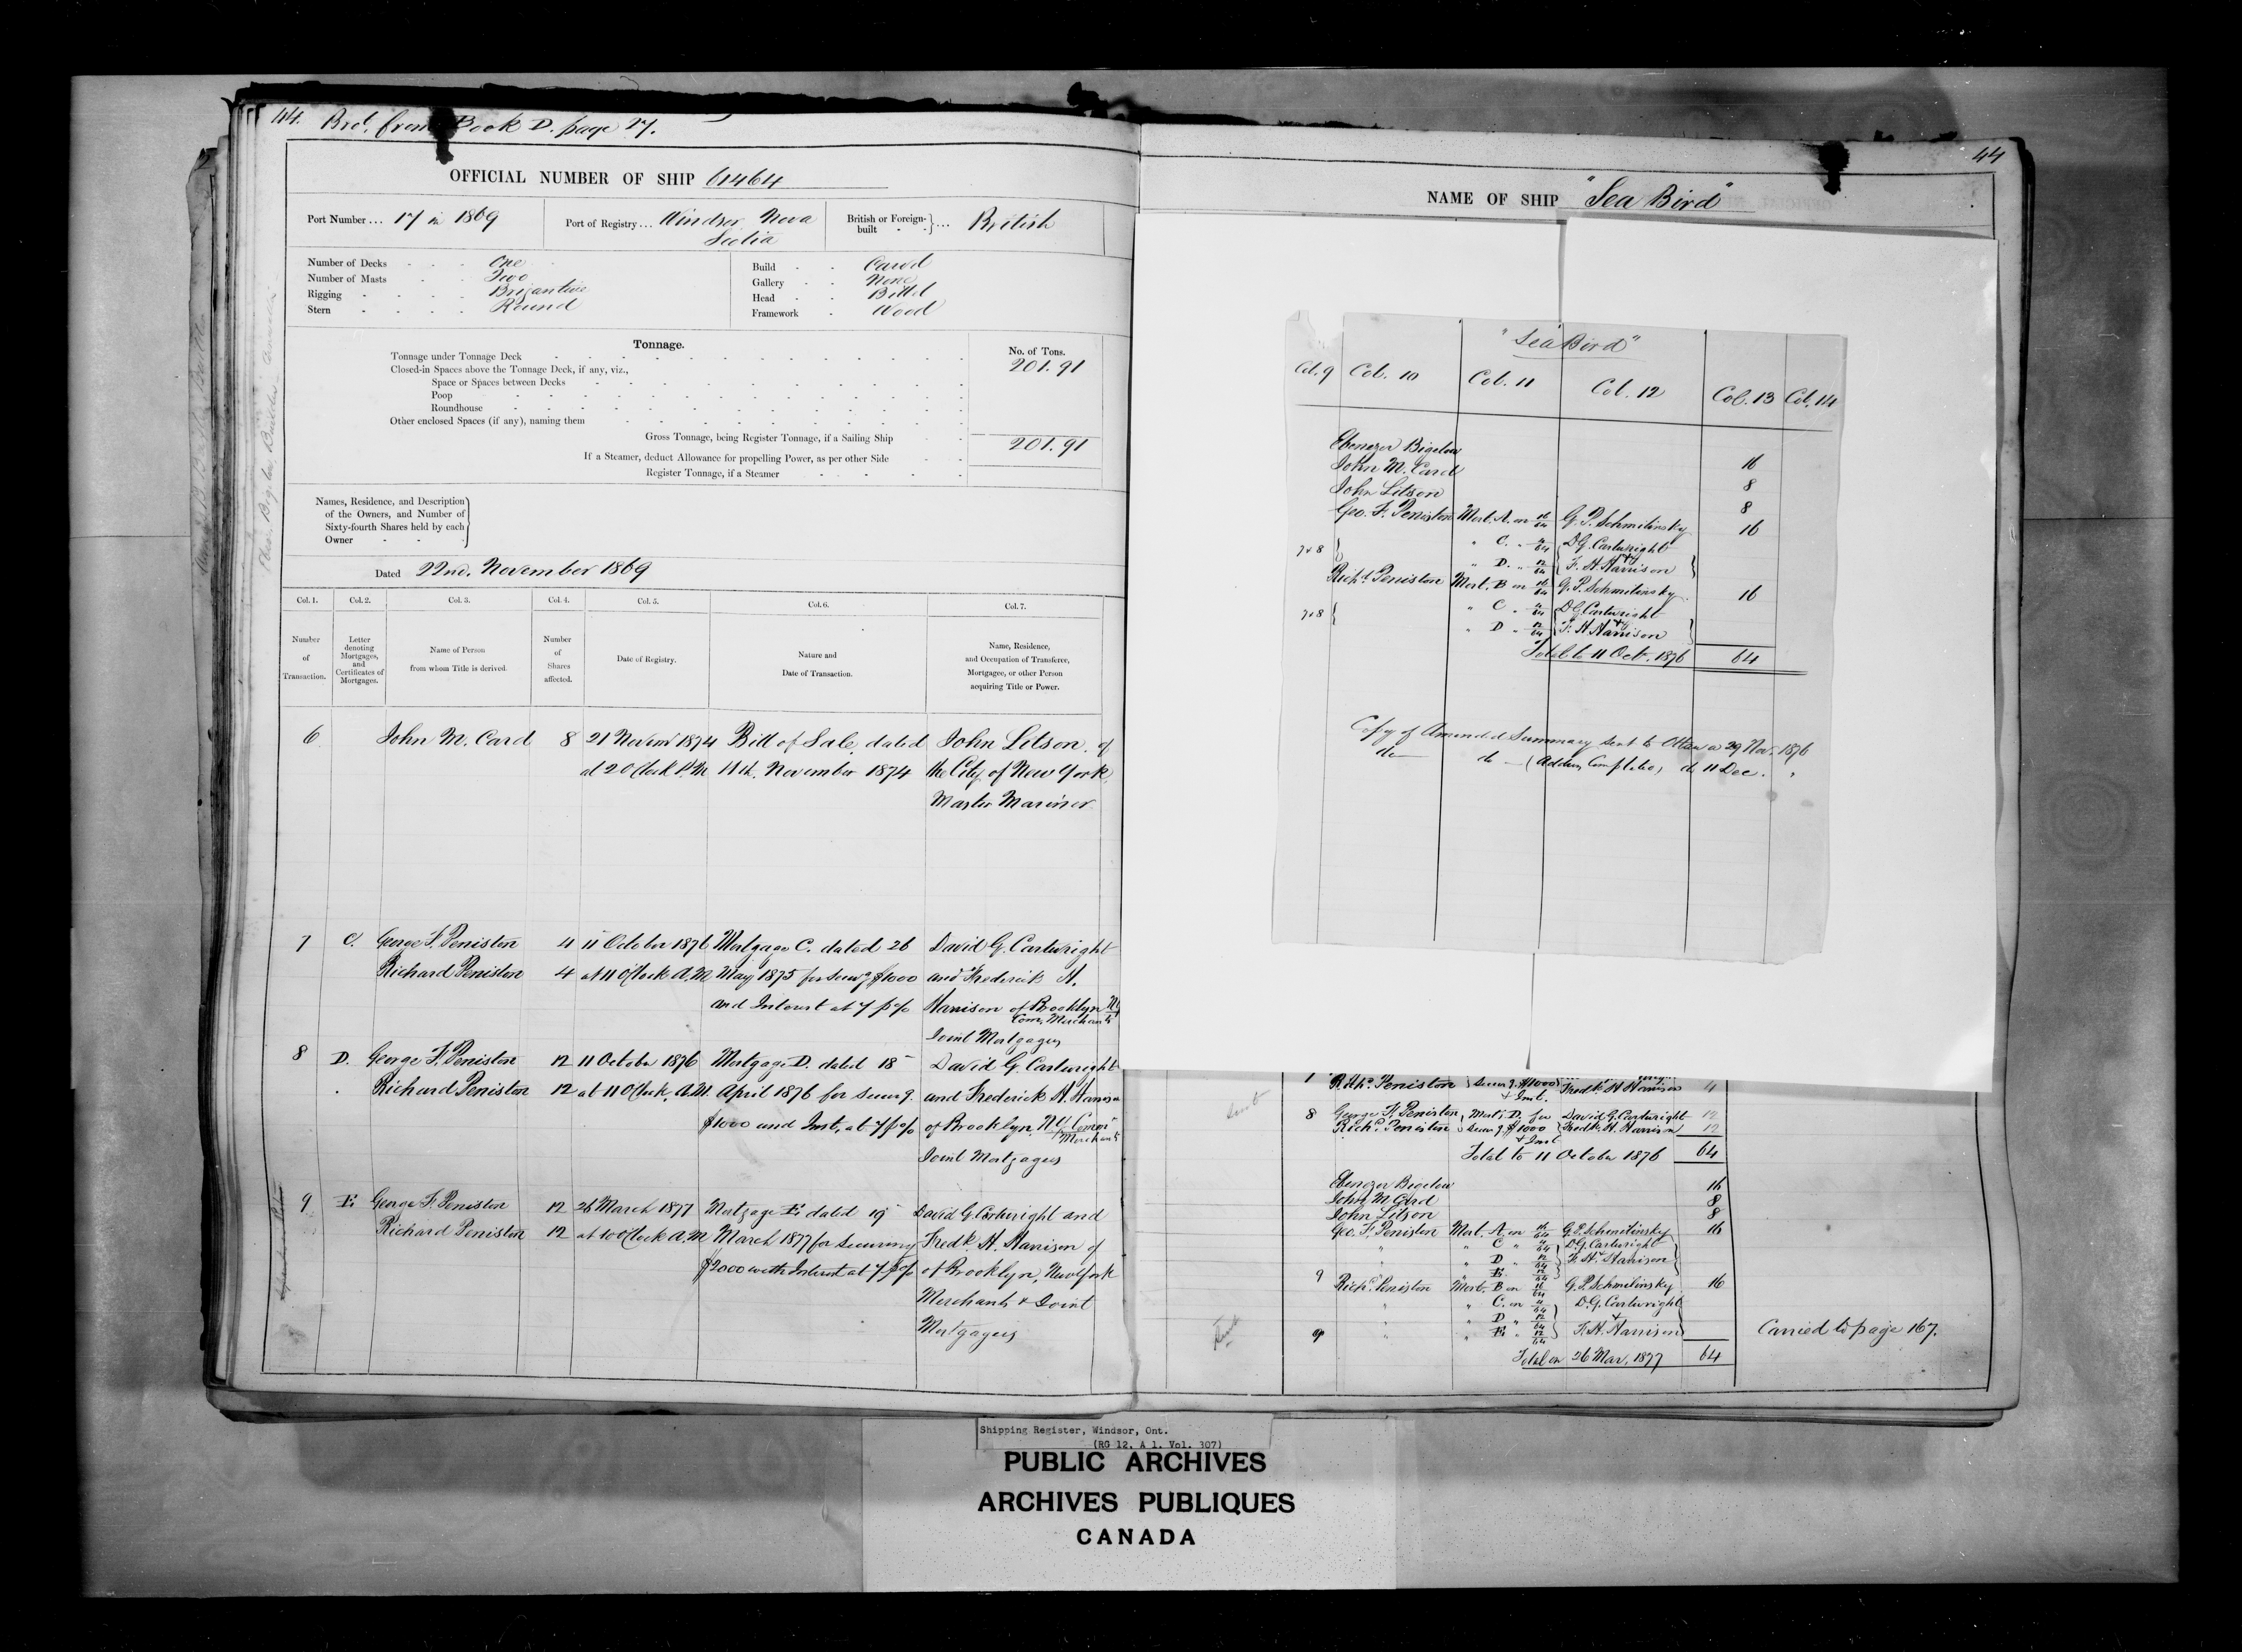 44. Brot. from Book D. page 27.
OFFICIAL NUMBER OF SHIP 61464
Port Number ... 17 in 1869
Port of Registry ... Windsor Nova
Scotia
British or Foreign-
built - - } ... British
Number of Decks - - - One
Number of Masts - - Two
Rigging - - - - Brigantine
Stern - - - - Round
Build - - Carvel
Gallery - - None
Head - - Billet
Framework - Wood
Tonnage.
No. of Tons.
Tonnage under Tonnage Deck 201.91
Closed-in Spaces above the Tonnage Deck, if any, viz.,
Space or Spaces between Decks
Poop
Roundhouse
Other enclosed Spaces (if any), naming them
Gross Tonnage, being Register Tonnage, if a Sailing Ship 201.91
If a Steamer, deduct Allowance for propelling Power, as per other Side
Register Tonnage, if a Steamer
Names, Residence, and Description
of the Owners, and Number of
Sixty-fourth Shares held by each
Owner - -
Dated 22nd. November 1869
Col. 1. Col. 2. Col. 3. Col. 4. Col. 5. Col. 6. Col. 7.
Number
of
Transaction.
Letter
denoting
Mortgages,
and
Certificates of
Mortgages.
Name of Person
from whom Title is derived.
Number
of
Shares
affected.
Date of Registry.
Nature and
Date of Transaction.
Name, Residence,
and Occupation of Transferee,
Mortgagee, or other Person
acquiring Title or Power.
6 John M. Card 8 21 Novemr 1874 Bill of Sale, dated John Litson, of
at 2 O'Clock P.M. 11th. November 1874 the City of New York,
Master Mariner
7 C. George F. Peniston 4 11 October 1876 Mortgage C. dated 26 David G. Cartwright
Richard Peniston 4 at 11 O'Clock A.M. May 1875 for Secug $1000 and Frederick H.
and Interest at 7 p% Harrison of Brooklyn NY
Com. Merchants
Joint Mortgagees
8 D. George F. Peniston 12 11 October 1876 Mortgage D. dated 18 David G. Cartwright
Richard Peniston 12 at 11 O'Clock, A.M. April 1876 for Secug. and Frederick H. Harrison
$1000 and Inst. at 7 p% of Brooklyn, NY Comn
Merchants
Joint Mortgagees
9 E. George F. Peniston 12 26 March 1877 Mortgage E. dated 19 David G. Cartwright and
Richard Peniston 12 at 10 O'Clock A.M. March 1877 for Securing Fredk. H. Harrison of
$2000 with Interest at 7 p% of Brooklyn, New York
Merchants & Joint
Mortgagees
44
NAME OF SHIP "Sea Bird"
"Sea Bird"
Col. 9 Col. 10 Col. 11 Col. 12 Col. 13 Col. 14
Ebenezer Bigelow 16
John M. Card 8
John Litson 8
Geo. F. Peniston Mort. A. on 16/64 G. P. Schmilinsky 16
7 & 8 " C. " 4/64 D G. Cartwright
" D. " 12/64 & F. H Harrison
Richd. Peniston Mort. B on 16/64 G. P. Schmilinsky 16
7 & 8 " C " 4/64 D G. Cartwright
" D " 12/64 & F. H Harrison
Total to 11 Oct. 1876 64
Copy of Amended Summary sent to Ottawa 29 Nov. 1876
do do (Address Completed) do 11 Dec. "
Richd. Peniston Secug. $1000 Fredk. H Harrison 4
& Inst.
8 George F. Peniston Mort. D. for David G. Cartwright 12
Richd. Peniston Secug $1000 Fredk. H. Harrison 12
& Inst
Total to 11 October 1876 64
Ebenezer Bigelow 16
John M Card 8
John Litson 8
Geo. F. Peniston Mort. A. on 16/64 G. P. Schmilinsky 16
" " C " 4/64 D. G. Cartwright
" " D " 12/64 & F. H. Harrison
9 " " E. 12/64
Richd. Peniston Mort. B on 16/64 G. P. Schmilinsky 16
" " C. on 4/64 D. G. Cartwright
" " D " 12/64 &
9 " " E. " 12/64 F. H. Harrison
Total on 26 Mar. 1877 64
Carried to page 167.
Shipping Register, Windsor, Ont.
(RG 12, A 1, Vol. 307)
PUBLIC ARCHIVES
ARCHIVES PUBLIQUES
CANADA